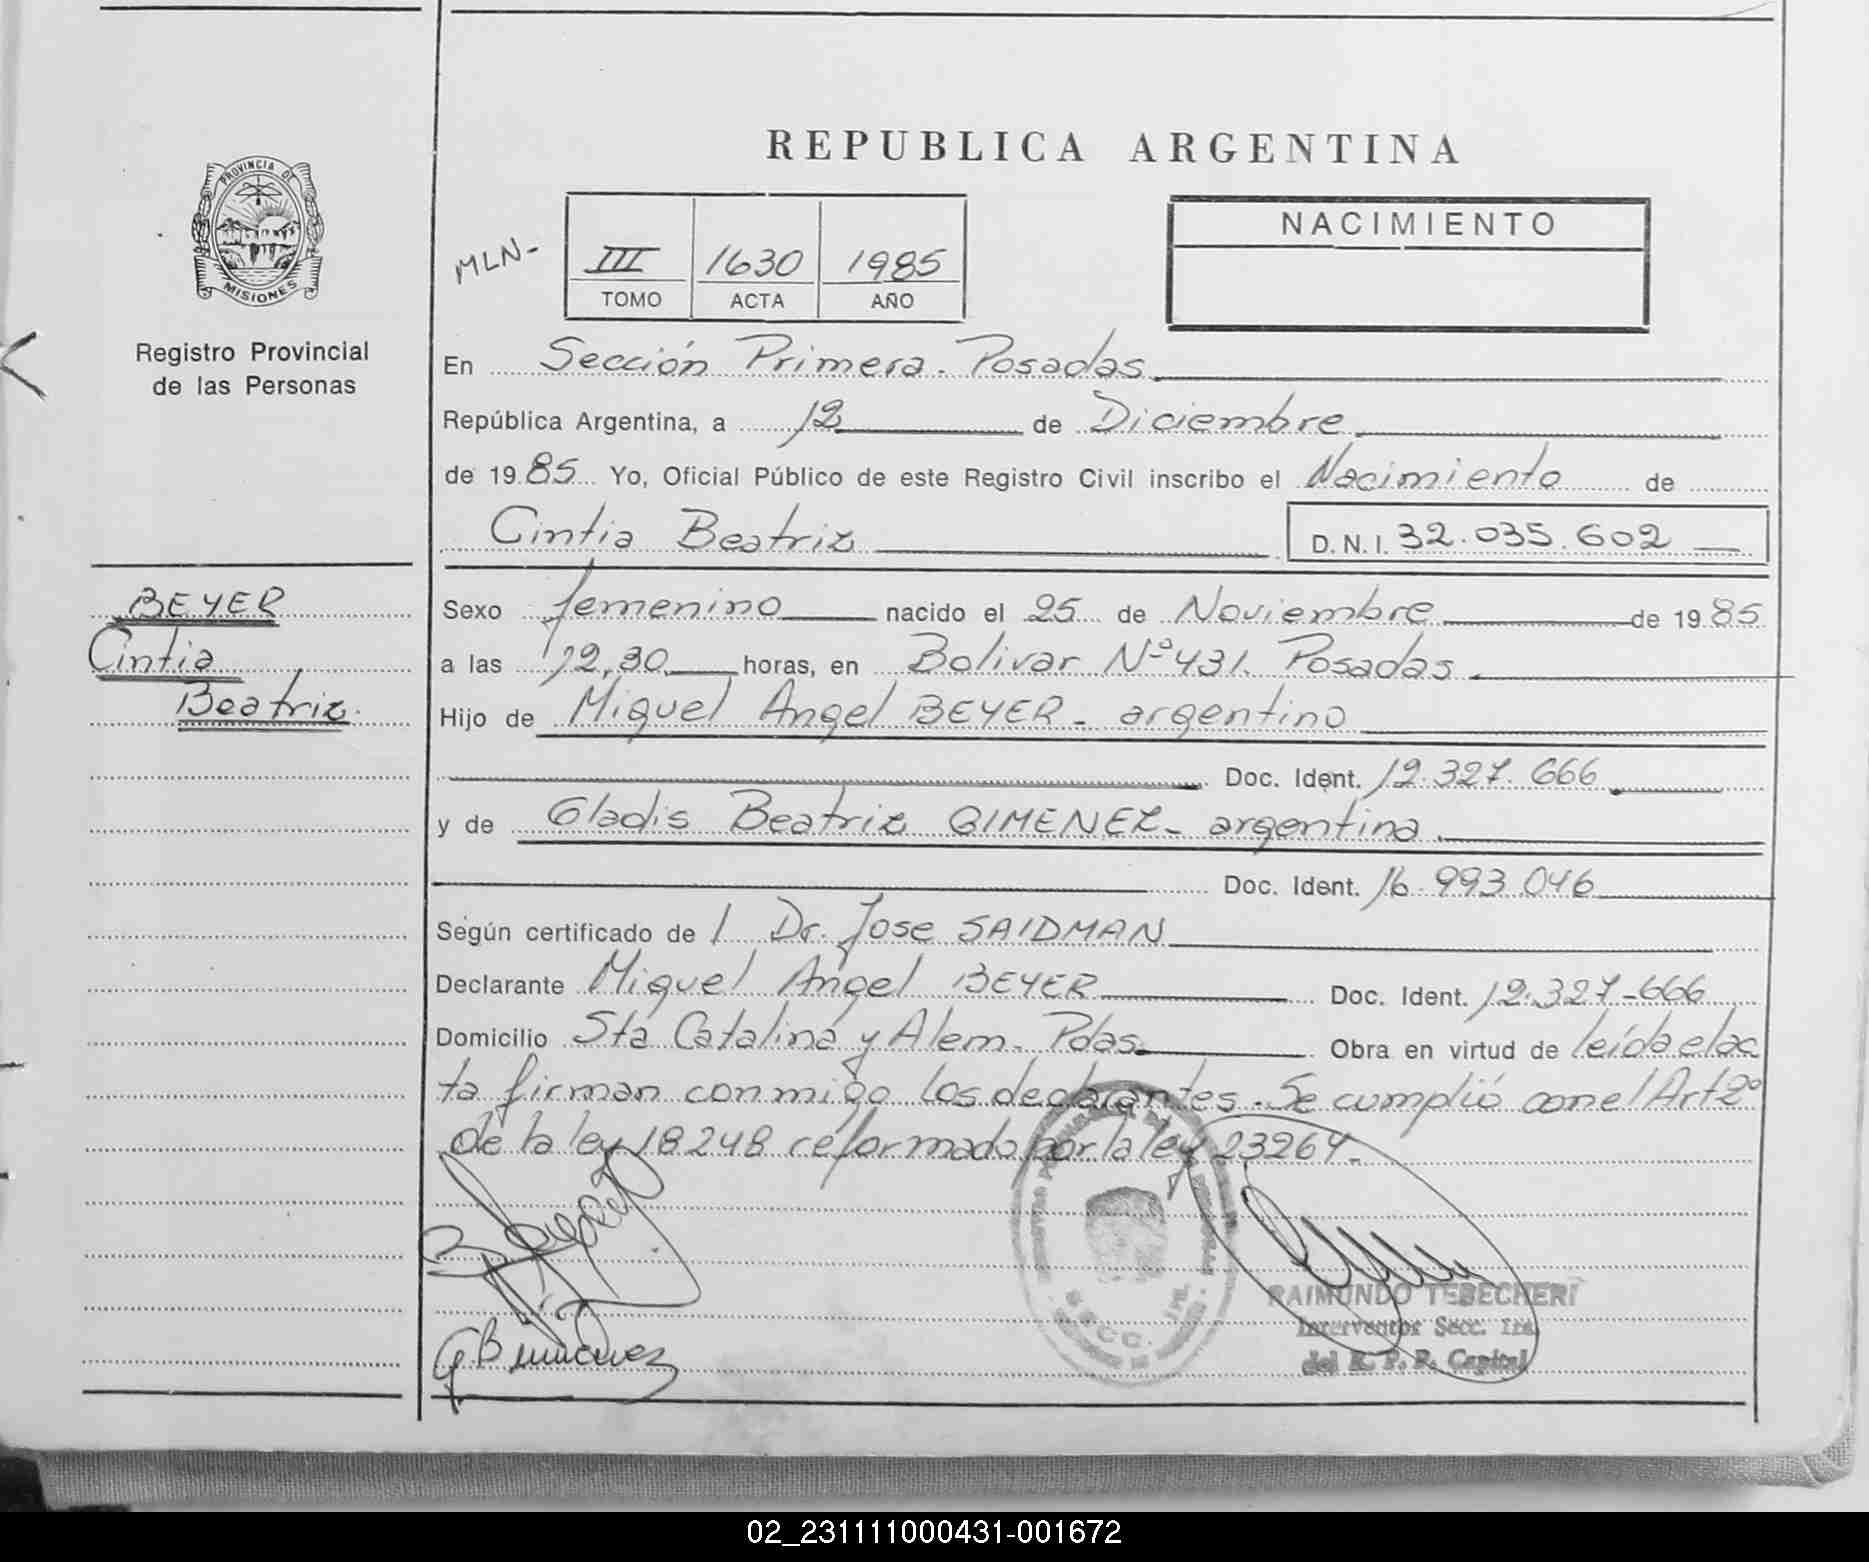 REPUBLICA ARGENTINA
PROVINCIA DE
MISIONES
Registro Provincial
de las Personas
MLN-
III 1630 1985
TOMO ACTA AÑO
NACIMIENTO
En Sección Primera. Posadas
República Argentina, a 12 de Diciembre
de 1985 Yo, Oficial Público de este Registro Civil inscribo el Nacimiento de
Cintia Beatriz D.N.I. 32.035.602
BEYER
Cintia
Beatriz.
Sexo femenino nacido el 25 de Noviembre de 1985
a las 12,30 horas, en Bolivar Nº 431. Posadas
Hijo de Miguel Angel BEYER - argentino
Doc. Ident. 12.327.666
y de Gladis Beatriz GIMENEZ - argentina
Doc. Ident. 16.993.046
Según certificado de / Dr. Jose SAIDMAN
Declarante Miguel Angel BEYER Doc. Ident. 12.327-666
Domicilio Sta Catalina y Alem. Pdas. Obra en virtud de leída el ac
ta firman conmigo los declarantes. Se cumplió con el Art 2º
de la ley 18248 reformado por la ley 23264-
SECC. 1ra.
G B Gimenez
RAIMUNDO TEBECHERI
Interventor Secc. 1ra.
del R. P. P. Capital
02_231111000431-001672